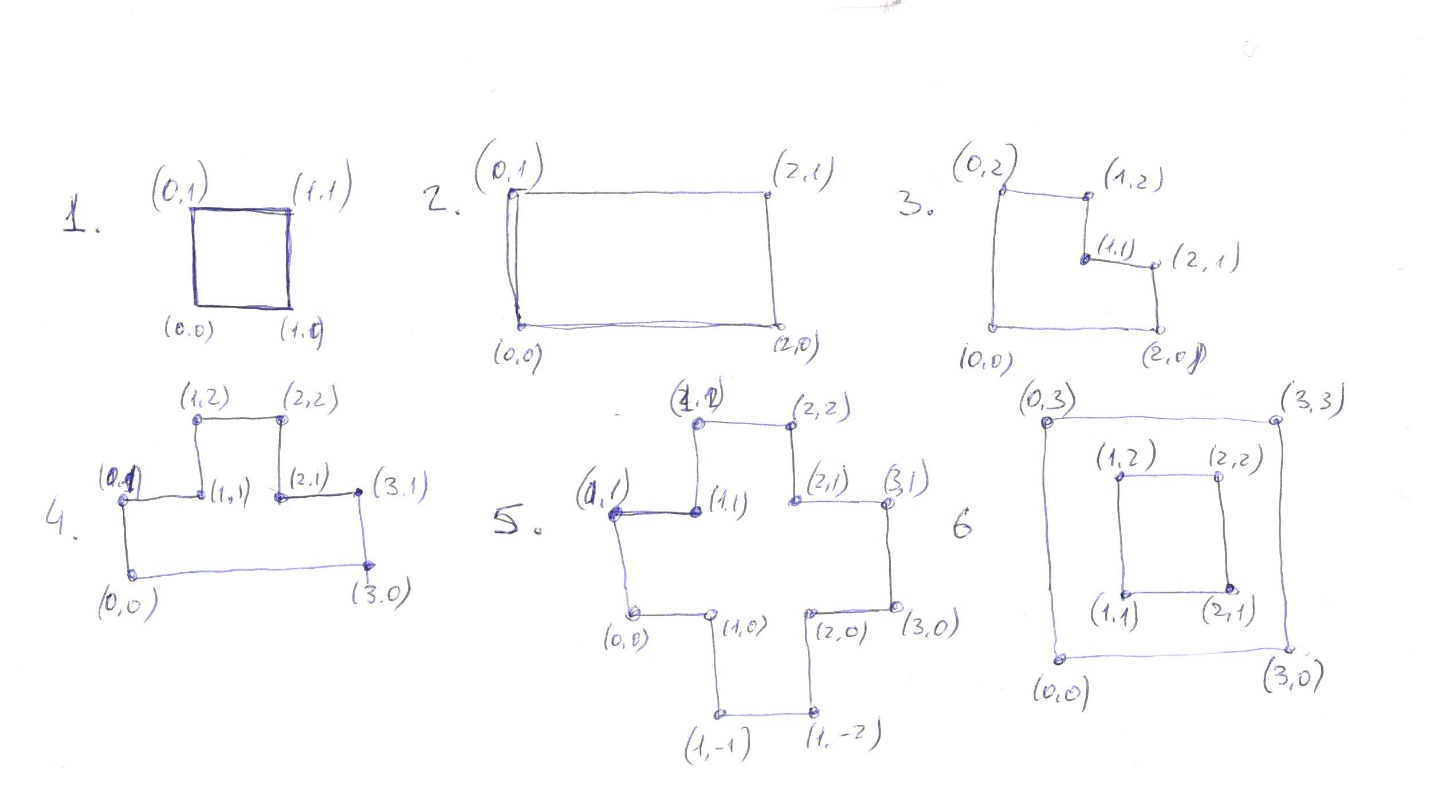 1. (0,1) (1,1)
(0.0) (1.0)
2. (0,1) (2,1)
(0,0) (2,0)
3. (0,2) (1,2)
(1,1) (2,1)
(0,0) (2,0)
4. (1,2) (2,2)
(0,1) (1,1) (2.1) (3.1)
(0,0) (3.0)
5. (2,2)
(0,1) (1,1) (2,1) (3,1)
(0,0) (1,0) (2,0) (3,0)
(1,-1) (1,-2)
6 (0,3) (3,3)
(1,2) (2,2)
(1,1) (2,1)
(0,0) (3,0)